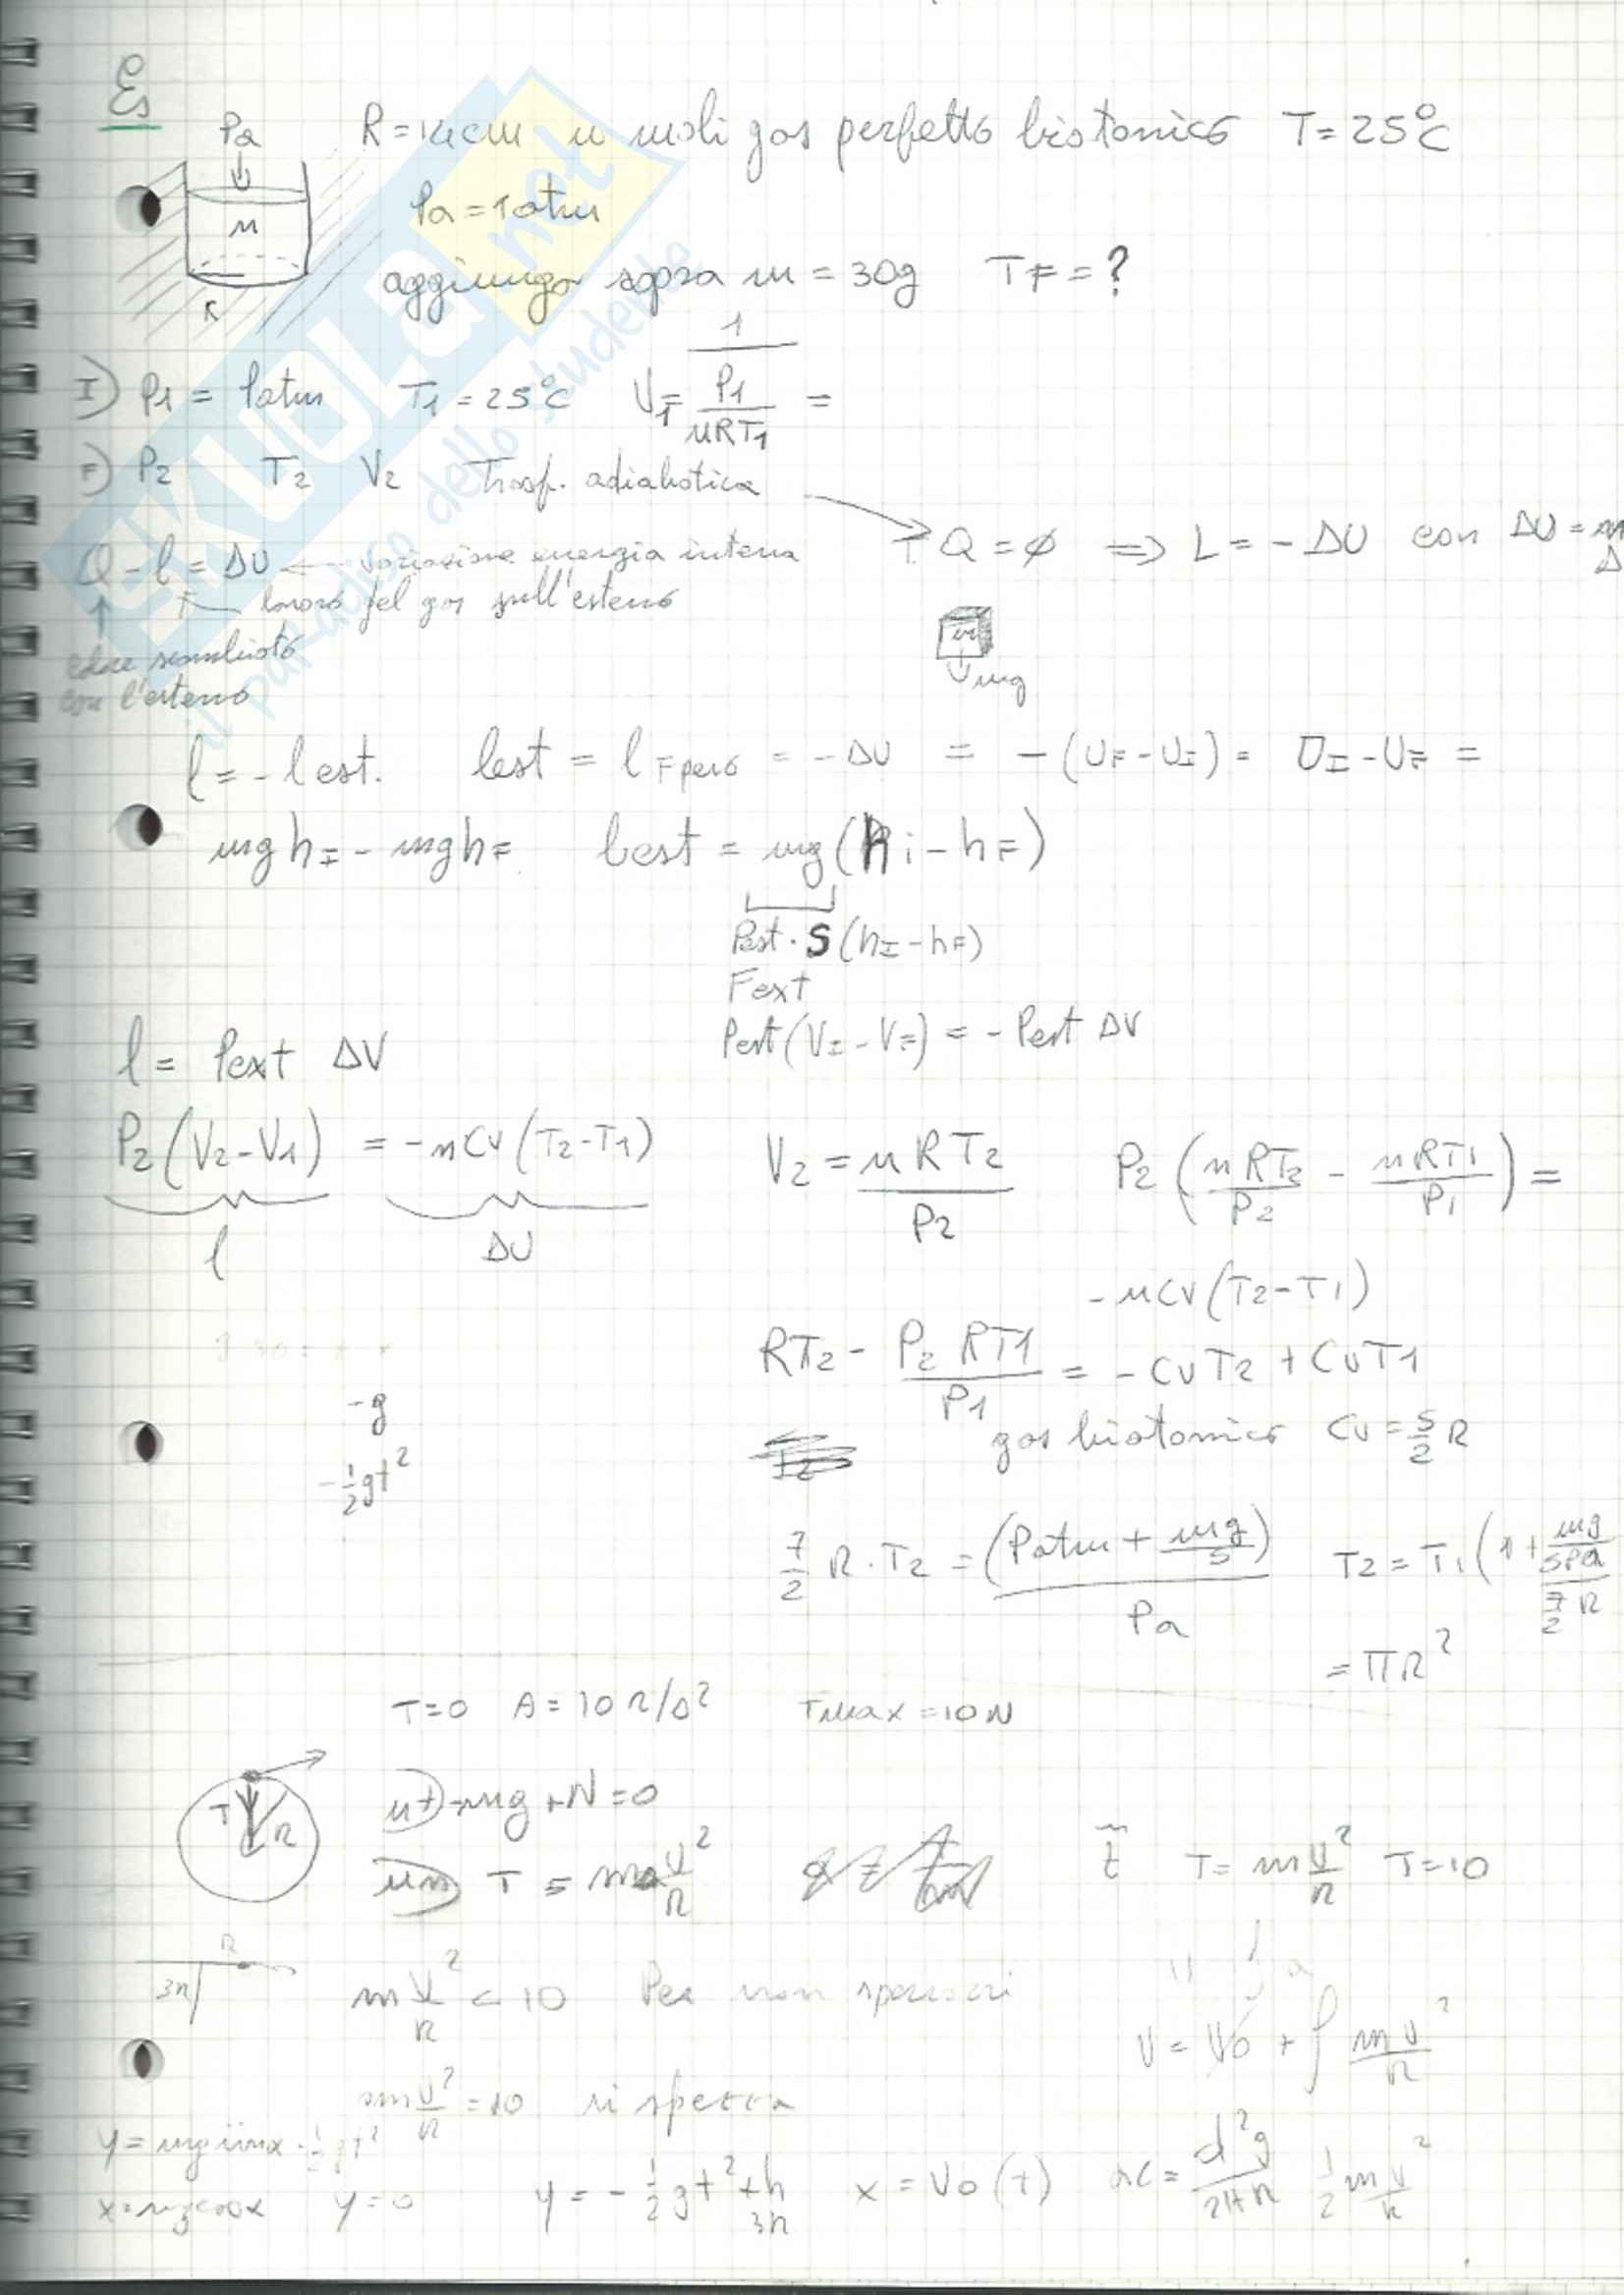 Es
Pa R = 14cm n moli gas perfetto biatomico T = 25°C
Pa = 1 atm
M
aggiungo sopra m = 30g TF = ?
R
I) P1 = 1atm T1 = 25°C V1 = 1/(P1/nRT1) =
F) P2 T2 V2 Trasf. adiabatica
Q - l = ΔU ← variazione energia interna → Q = ∅ ⇒ L = -ΔU con ΔU =
lavoro del gas sull'esterno
calore scambiato
con l'esterno
m
mg
l = - l est. lest = l F peso = -ΔU = -(UF-UI) = UI-UF =
mg hI - mg hF lest = mg (hi - hF)
Pest · S (hI - hF)
Fext
Pest (VI - VF) = - Pest ΔV
l = Pext ΔV
P2 (V2-V1) = -nCv (T2-T1) V2 = nRT2/P2 P2 (nRT2/P2 - nRT1/P1) =
l ΔU
-nCv (T2-T1)
RT2 - P2 RT1/P1 = -CvT2 + CvT1
-g
gas biatomico Cv = 5/2 R
-1/2 gt²
7/2 R·T2 = (Patm + mg/S)/Pa T2 = T1 (1 + mg/SPa / 7/2 R
= πR²
T=0 A = 10 r/s² Tmax = 10N
T R
ut) -mg + N = 0
un) T = m v²/R t̃ T = m v²/R T = 10
R
3R
m v²/R < 10 Per non spezzarsi
V = V0 + ∫ m v²/R
m v²/R = 10 si spezza
y = mg sinα - 1/2 gt²
x = mg cosα y = 0 y = -1/2 gt² + h x = V0 (t) ac = d²g/2πR 1/2 m v²/R
3R
SKUOLA.net
il paradiso dello studente